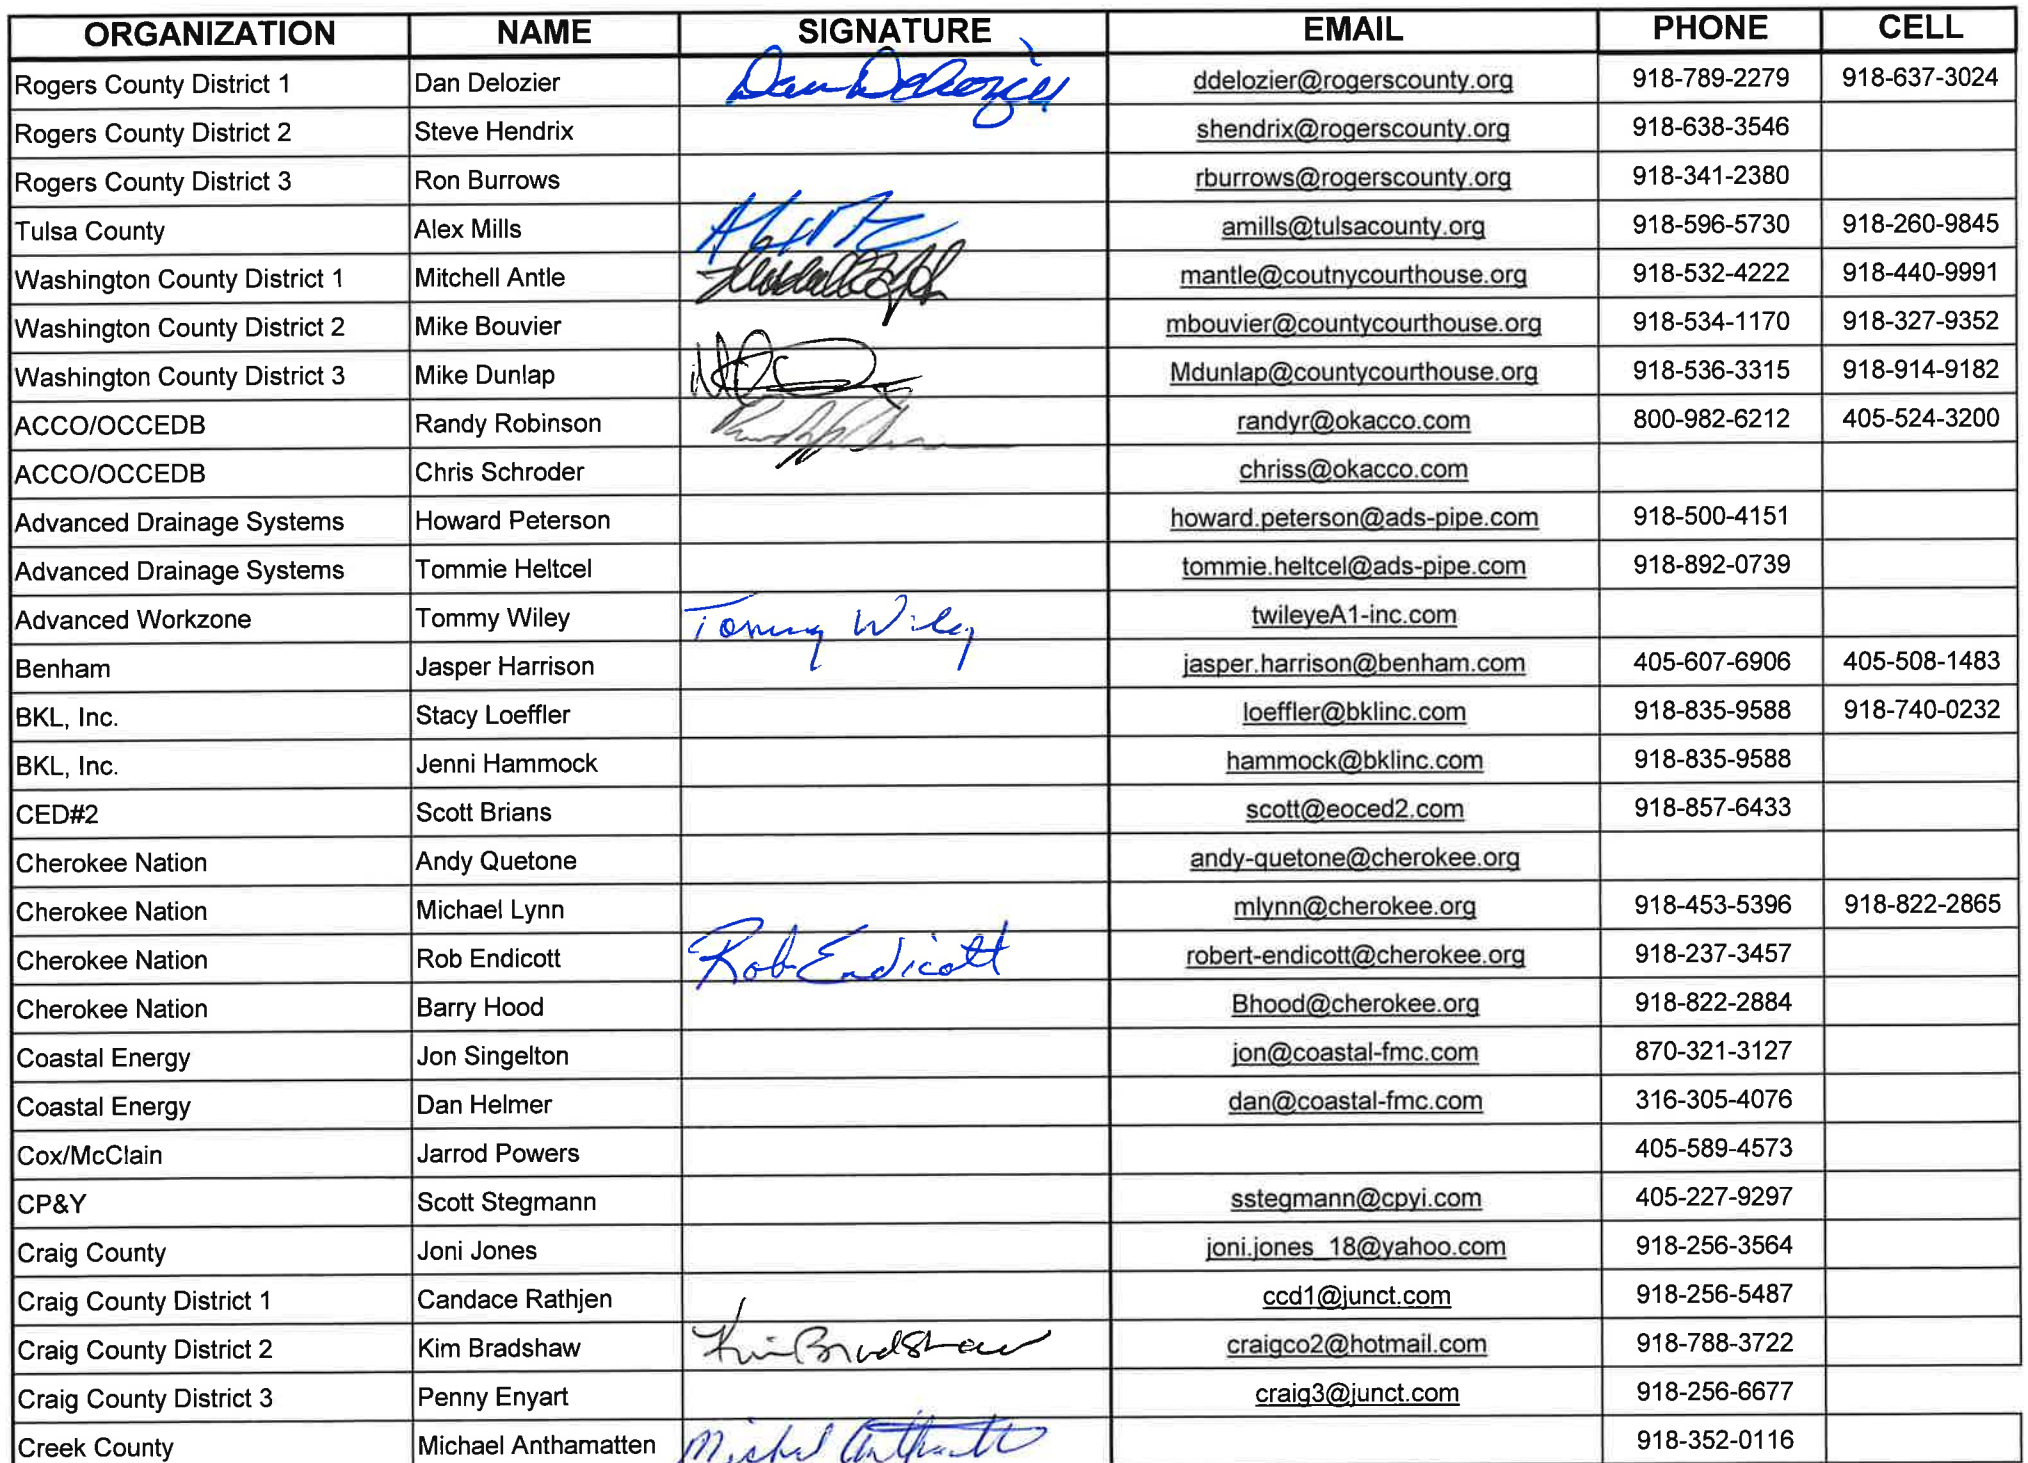 ORGANIZATION NAME SIGNATURE EMAIL PHONE CELL
Rogers County District 1 Dan Delozier Dan Delozier ddelozier@rogerscounty.org 918-789-2279 918-637-3024
Rogers County District 2 Steve Hendrix shendrix@rogerscounty.org 918-638-3546
Rogers County District 3 Ron Burrows rburrows@rogerscounty.org 918-341-2380
Tulsa County Alex Mills amills@tulsacounty.org 918-596-5730 918-260-9845
Washington County District 1 Mitchell Antle mantle@coutnycourthouse.org 918-532-4222 918-440-9991
Washington County District 2 Mike Bouvier mbouvier@countycourthouse.org 918-534-1170 918-327-9352
Washington County District 3 Mike Dunlap Mdunlap@countycourthouse.org 918-536-3315 918-914-9182
ACCO/OCCEDB Randy Robinson randyr@okacco.com 800-982-6212 405-524-3200
ACCO/OCCEDB Chris Schroder chriss@okacco.com
Advanced Drainage Systems Howard Peterson howard.peterson@ads-pipe.com 918-500-4151
Advanced Drainage Systems Tommie Heltcel tommie.heltcel@ads-pipe.com 918-892-0739
Advanced Workzone Tommy Wiley Tommy Wiley twileyeA1-inc.com
Benham Jasper Harrison jasper.harrison@benham.com 405-607-6906 405-508-1483
BKL, Inc. Stacy Loeffler loeffler@bklinc.com 918-835-9588 918-740-0232
BKL, Inc. Jenni Hammock hammock@bklinc.com 918-835-9588
CED#2 Scott Brians scott@eoced2.com 918-857-6433
Cherokee Nation Andy Quetone andy-quetone@cherokee.org
Cherokee Nation Michael Lynn mlynn@cherokee.org 918-453-5396 918-822-2865
Cherokee Nation Rob Endicott Rob Endicott robert-endicott@cherokee.org 918-237-3457
Cherokee Nation Barry Hood Bhood@cherokee.org 918-822-2884
Coastal Energy Jon Singelton jon@coastal-fmc.com 870-321-3127
Coastal Energy Dan Helmer dan@coastal-fmc.com 316-305-4076
Cox/McClain Jarrod Powers 405-589-4573
CP&Y Scott Stegmann sstegmann@cpyi.com 405-227-9297
Craig County Joni Jones joni.jones_18@yahoo.com 918-256-3564
Craig County District 1 Candace Rathjen ccd1@junct.com 918-256-5487
Craig County District 2 Kim Bradshaw Kim Bradshaw craigco2@hotmail.com 918-788-3722
Craig County District 3 Penny Enyart craig3@junct.com 918-256-6677
Creek County Michael Anthamatten 918-352-0116